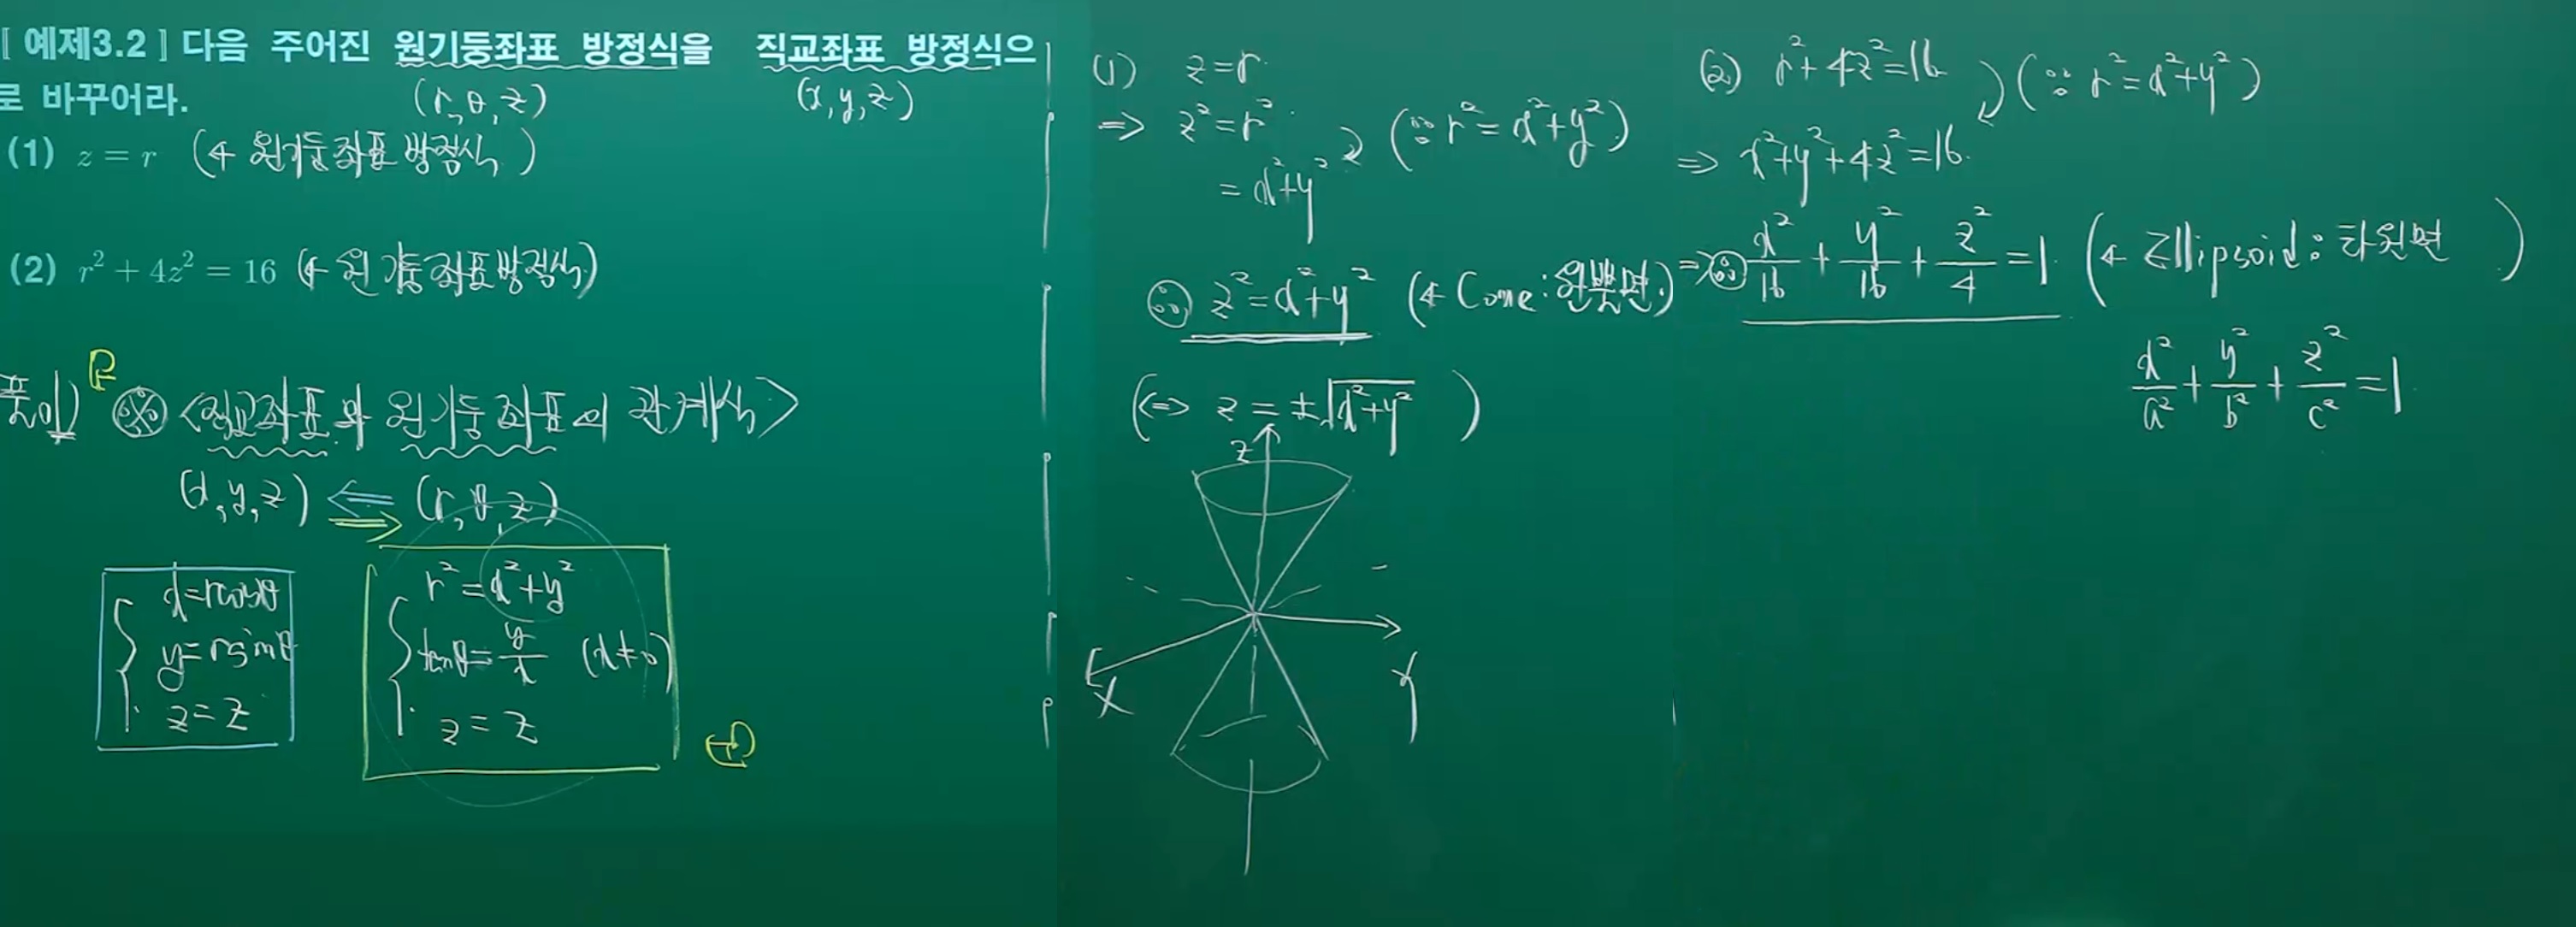 [ 예제3.2 ] 다음 주어진 원기둥좌표 방정식을 직교좌표 방정식으
로 바꾸어라.
(r, θ, z) (x, y, z)
(1) z = r (← 원기둥좌표 방정식)
(2) r² + 4z² = 16 (← 원기둥좌표방정식)
풀이) ※ <직교좌표와 원기둥좌표의 관계식>
(x, y, z) ⇐ ⇒ (r, θ, z)
x=rcosθ
y=rsinθ
z=z
r²=x²+y²
tanθ=y/x (x≠0)
z=z
(1) z=r
⇒ z²=r²
=x²+y² (∵ r²=x²+y²)
∴ z²=x²+y² (← Cone:원뿔면.)
(⇔ z=±√x²+y² )
Z
X
Y
(2) r²+4z²=16 (∵ r²=x²+y²)
⇒ x²+y²+4z²=16.
⇒ ∴ x²/16 + y²/16 + z²/4 =1. (← Ellipsoid: 타원면 )
x²/a² + y²/b² + z²/c² =1.